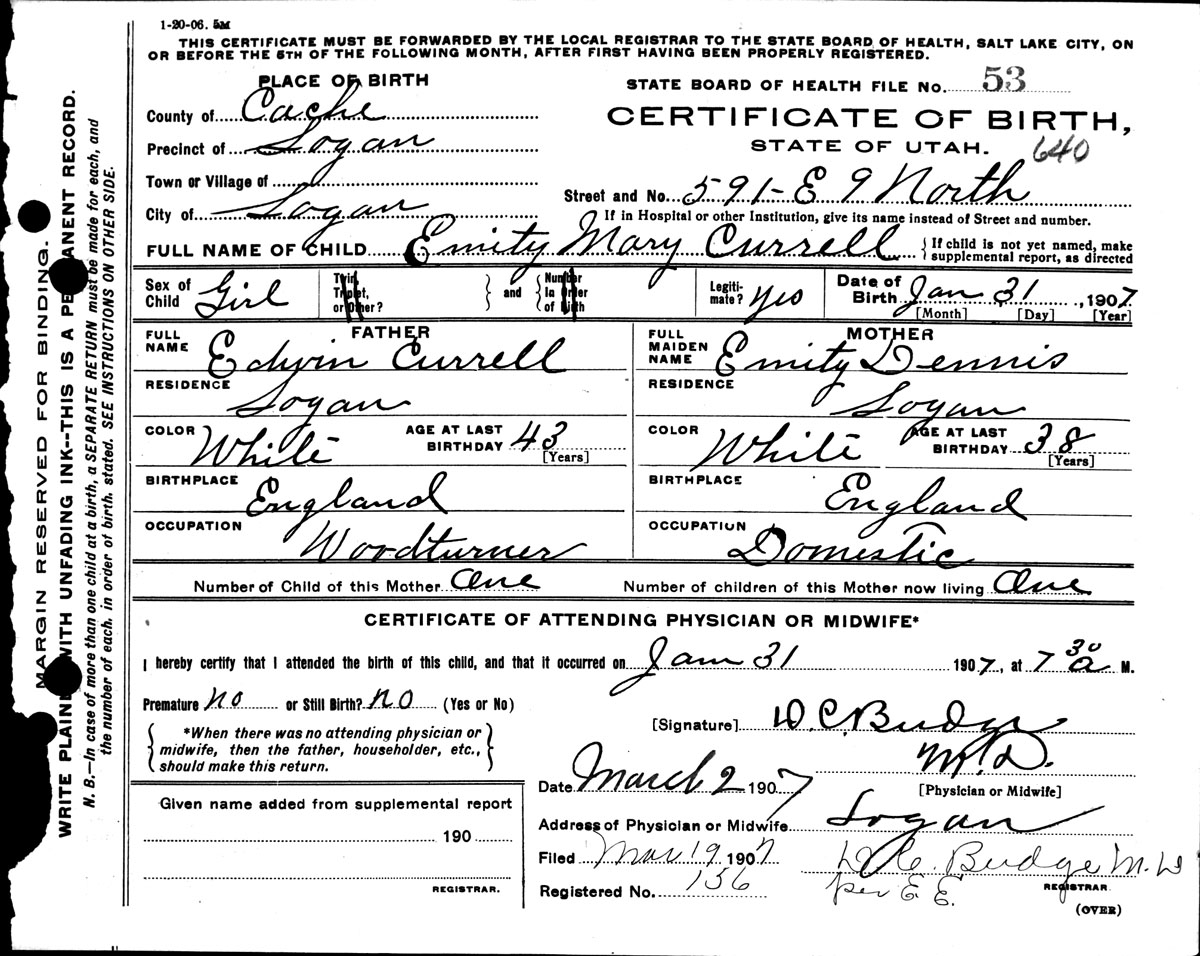 1-20-06. 5M
THIS CERTIFICATE MUST BE FORWARDED BY THE LOCAL REGISTRAR TO THE STATE BOARD OF HEALTH, SALT LAKE CITY, ON
OR BEFORE THE 5TH OF THE FOLLOWING MONTH, AFTER FIRST HAVING BEEN PROPERLY REGISTERED.
PLACE OF BIRTH
STATE BOARD OF HEALTH FILE No. 53
County of Cache
CERTIFICATE OF BIRTH,
Precinct of Logan
STATE OF UTAH. 640
Town or Village of
Street and No. 591-E 9 North
City of Logan
If in Hospital or other Institution, give its name instead of Street and number.
FULL NAME OF CHILD Emity Mary Currell { If child is not yet named, make
supplemental report, as directed
Sex of Child Girl
Twin, Triplet, or Other? } and { Number In Order of Birth
Legiti-mate? Yes
Date of Birth Jan 31, 1907
[Month] [Day] [Year]
FATHER
FULL NAME Edwin Currell
RESIDENCE Logan
COLOR White AGE AT LAST BIRTHDAY 43
[Years]
BIRTHPLACE England
OCCUPATION Woodturner
MOTHER
FULL MAIDEN NAME Emity Dennis
RESIDENCE Logan
COLOR White AGE AT LAST BIRTHDAY 38
[Years]
BIRTHPLACE England
OCCUPATION Domestic
Number of Child of this Mother One Number of children of this Mother now living One
CERTIFICATE OF ATTENDING PHYSICIAN OR MIDWIFE*
I hereby certify that I attended the birth of this child, and that it occurred on Jan 31 1907, at 7 30 a M.
Premature no or Still Birth? no (Yes or No)
*When there was no attending physician or
midwife, then the father, householder, etc.,
should make this return.
[Signature] D C Budge
M.D.
[Physician or Midwife]
Date March 2 1907
Address of Physician or Midwife Logan
Filed Mar 19 1907
D C. Budge M.D
Registered No. 156
per E E.
REGISTRAR
(OVER)
Given name added from supplemental report
190
REGISTRAR.
MARGIN RESERVED FOR BINDING.
WRITE PLAINLY WITH UNFADING INK--THIS IS A PERMANENT RECORD.
N. B.—In case of more than one child at a birth, a SEPARATE RETURN must be made for each, and
the number of each, in order of birth, stated. SEE INSTRUCTIONS ON OTHER SIDE.